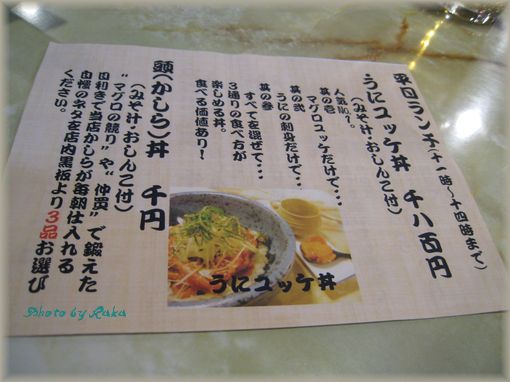 平日ランチ(十一時〜十四時まで)
うにユッケ丼 千八百円
(みそ汁・おしんこ付)
人気No.1。
其の壱
マグロユッケだけで・・・
其の弐
うにの刺身だけで・・・
其の参
すべてを混ぜて・・・
3通りの食べ方が
楽しめる丼。
食べる価値あり!
頭(かしら)丼 千円
(みそ汁・おしんこ付)
“マグロの競り”や“仲買”で鍛えた
目利きで当店かしらが毎朝仕入れる
自慢のネタを店内黒板より3品お選び
ください。
うにユッケ丼
Photo by Raka